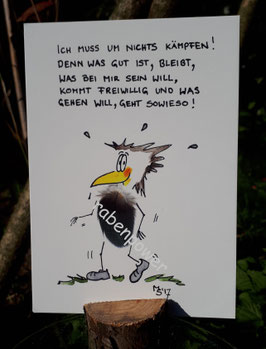 ICH MUSS UM NICHTS KÄMPFEN!
DENN WAS GUT IST, BLEIBT,
WAS BEI MIR SEIN WILL,
KOMMT FREIWILLIG UND WAS
GEHEN WILL, GEHT SOWIESO!
rabenpower